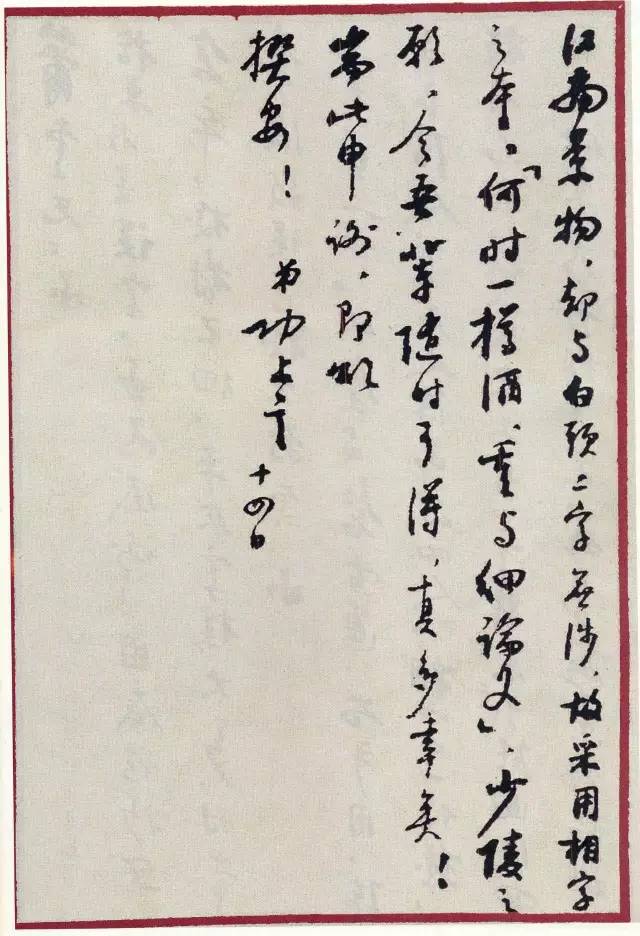 江南景物，却与白头二字无涉，故采用相字
之本。「何时一樽酒，重与细论文」，少陵之
愿，今吾辈随时可得，真多幸矣！
耑此申谢，即颂
撰安！
弟功上言 十四日